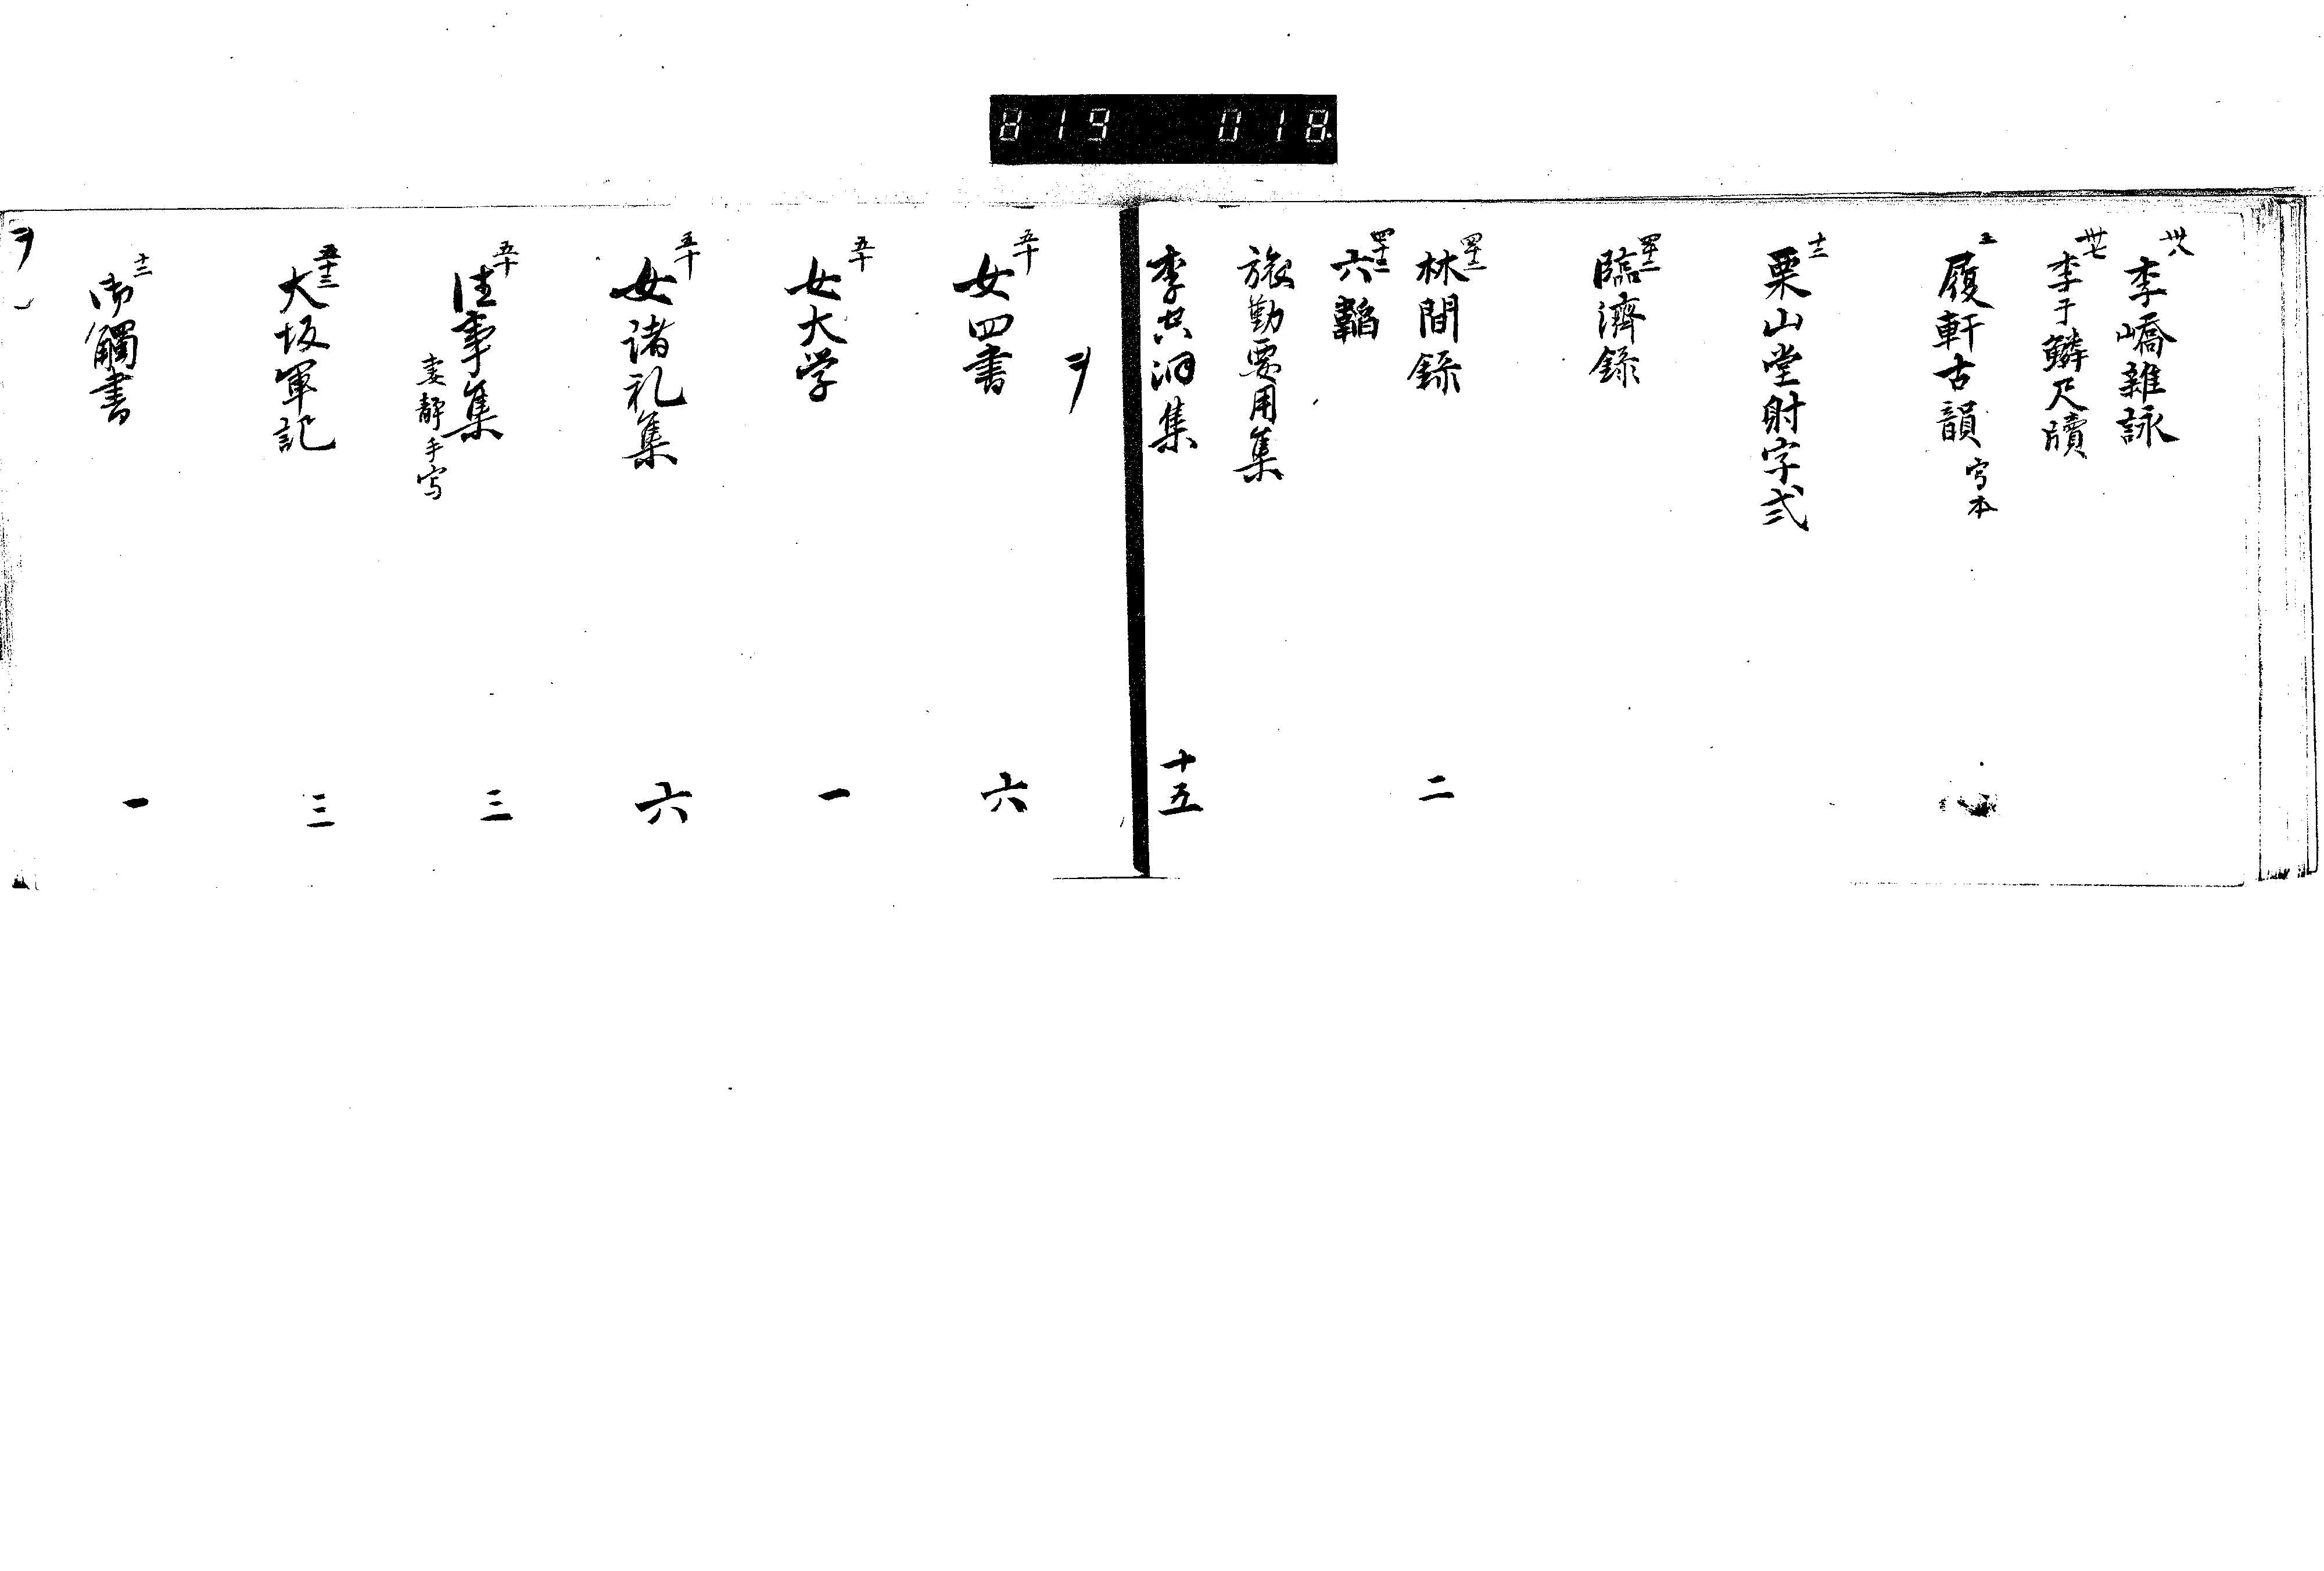 819 018
卅八 李嶠雜詠
卅七 李于鱗尺牘
五 履軒古韻 写本
十三 栗山堂財字弐
四十二 臨濟錄
四十二 林間錄 二
四十二 六韜
旅勤要用集
李空洞集 十五
ヲ
五十 女四書 六
五十 女大学 一
五十 女諸礼集 六
五十 徃事集 三
妻靜手写
五十三 大坂軍記 三
十三 御觸書 一
ヲ